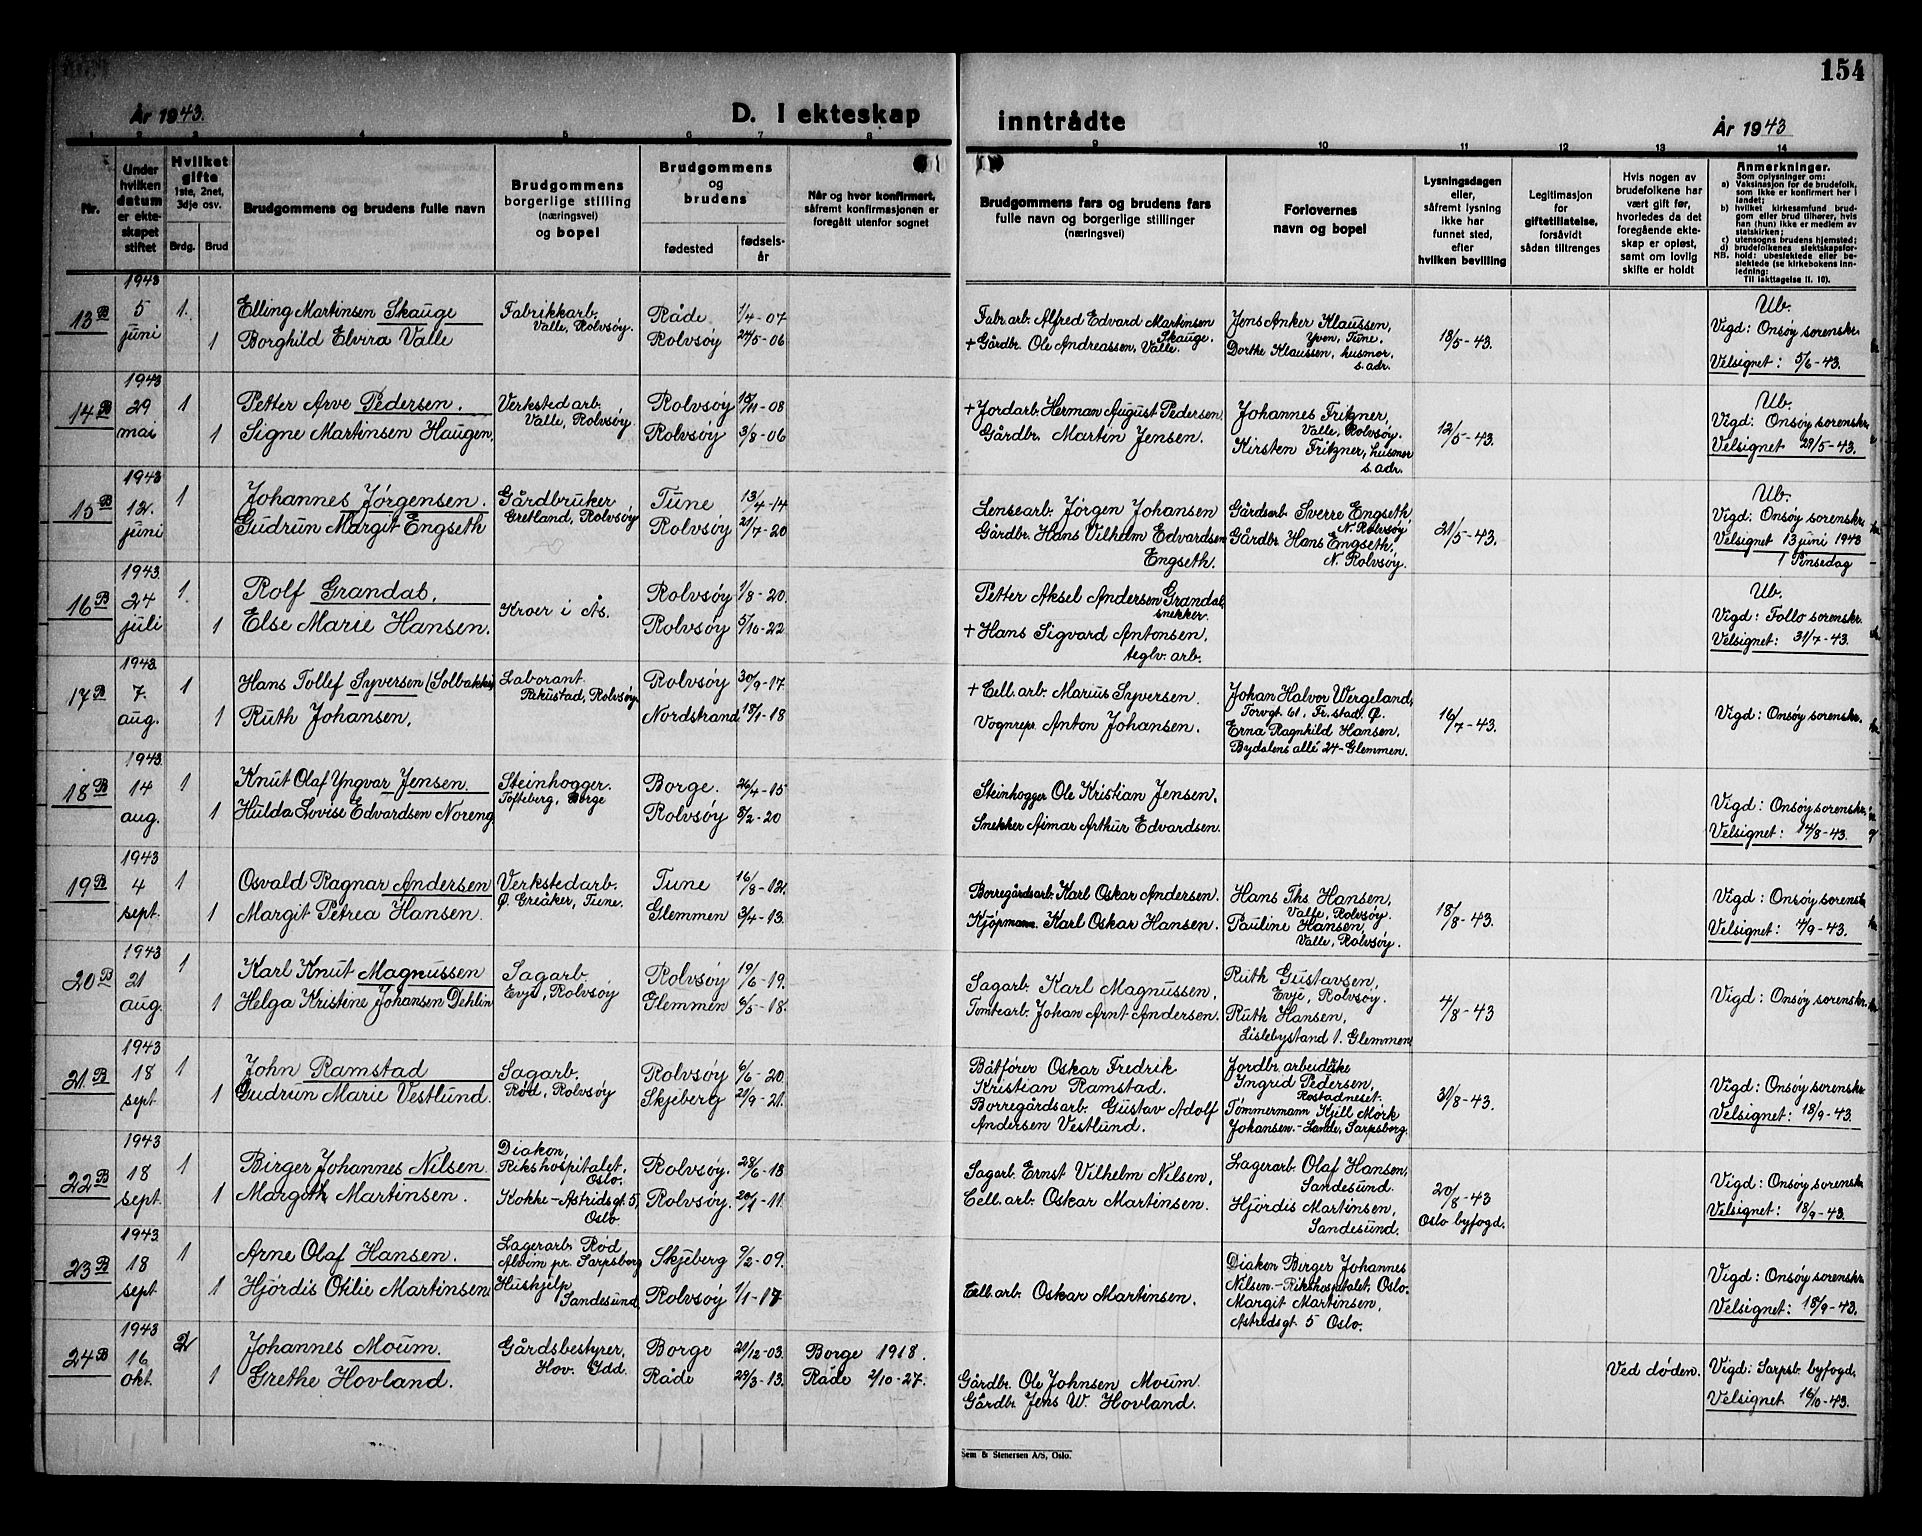 154
År 1943.
D. I ekteskap
inntrådte
År 1943
1 2 3 4 5 6 7 8
9 10 11 12 13 14
Nr.
Under hvilken datum er ekteskapet stiftet
Hvilket gifte 1ste, 2net, 3dje osv.
Brdg. Brud
Brudgommens og brudens fulle navn
Brudgommens borgerlige stilling (næringsvei) og bopel
Brudgommens og brudens
fødested
fødsels-år
Når og hvor konfirmert, såfremt konfirmasjonen er foregått utenfor sognet
Brudgommens fars og brudens fars fulle navn og borgerlige stillinger (næringsvei)
Forlovernes navn og bopel
Lysningsdagen eller, såfremt lysning ikke har funnet sted, efter hvilken bevilling
Legitimasjon for giftetillatelse, forsåvidt sådan tiltrenges
Hvis nogen av brudefolkene har vært gift før, hvorledes da det foregående ekteskap er opløst, samt om lovlig skifte er holdt
Anmerkninger.
Som oplysninger om:
a) Vaksinasjon for de brudefolk, som ikke er konfirmert her i landet;
b) hvilket kirkesamfund brudgom eller brud tilhører, hvis han (hun) ikke er medlem av statskirken;
c) utensogns brudens hjemsted;
d) brudefolkenes slektskapsforhold: ubeslektede eller beslektede (se kirkebokens innledning:
NB. Til iakttagelse II. 10).
13 B
1943 5 juni
1. Elling Martinsen Skauge
1 Borghild Elvira Valle
Fabrikkarb. Valle, Rolvsöy.
Råde 1/4-07
Rolvsöy 24/5-06
Fabr.arb. Alfred Edvard Martinsen Skauge.
+ Gårdbr. Ole Andreassen, Valle.
Jens Anker Klaussen, Yven, Tune.
Dorthe Klaussen, husmor, s. adr.
18/5-43.
Ub.
Vigd: Onsöy sorenskr.
Velsignet: 5/6-43.
14 B
1943 29 mai
1 Petter Arve Pedersen.
1 Signe Martinsen Haugen,
Verkstedarb. Valle, Rolvsöy.
Rolvsöy 15/11-08
Rolvsöy 3/8-06
+ Jordarb. Herman August Pedersen
Gårdbr. Martin Jensen.
Johannes Fritzner, Valle, Rolvsöy.
Kirsten Fritzner, husmor s. adr.
12/5-43.
Ub.
Vigd: Onsöy sorenskr.
Velsignet 29/5-43.
15 B
1943 12. juni
1 Johannes Jörgensen.
Gudrun Margit Engseth
Gårdbruker Gretland, Rolvsöy
Tune 13/4-14
Rolvsöy 21/7-20
Lensearb. Jörgen Johansen
Gårdbr. Hans Vilhelm Edvardsen Engseth.
Gårdsarb Sverre Engseth N. Rolvsöy
Gårdbr. Hans Engseth, N. Rolvsöy.
21/5-43.
Ub.
Vigd: Onsöy sorenskr.
Velsignet 13 juni 1943
1 Pinsedag
16 B
1943. 24 juli
1. Rolf Grandal,
1 Else Marie Hansen.
Kroer i Ås.
Rolvsöy 1/8-20.
Rolvsöy 5/10-22
Petter Aksel Andersen Grandal snekker.
+ Hans Sigvard Antonsen, teglv. arb.
Ub.
Vigd: Follo sorenskr.
Velsignet: 31/7-43.
17 B
1943. 7. aug.
1 Hans Tollef Syversen (Solbakken
1 Ruth Johansen,
Laborant. Rekustad, Rolvsöy.
Rolvsöy 30/9-17.
Nordstrand 18/1-18
+ Cell. arb. Marius Syversen.
Vognrepr. Anton Johansen.
Johan Halvor Wergeland, Torvgt 61, Fr.stad. Ø.
Erna Ragnhild Hansen, Bydalens allé 24-Glemmen.
16/7-43.
Vigd: Onsöy sorenskr.
18 B
1943. 14 aug.
1 Knut Olaf Yngvar Jensen.
1 Hulda Lovise Edvardsen Noreng
Steinhogger. Tofteberg, Borge
Borge. 26/4-15
Rolvsöy 5/2-20
Steinhogger Ole Kristian Jensen,
Snekker Aimar Arthur Edvardsen.
Vigd: Onsöy sorenskr.
Velsignet: 14/8-43.
19 B
1943 4 sept.
1 Osvald Ragnar Andersen
1 Margit Petrea Hansen.
Verkstedarb. Ø. Greåker, Tune.
Tune 16/8-12.
Glemmen 3/4-13.
Borregårdsarb. Karl Oskar Andersen.
Kjöpmann. Karl Oskar Hansen.
Hans Ths Hansen, Valle, Rolvsöy.
Pauline Hansen, Valle, Rolvsöy.
18/8-43.
Vigd: Onsöy sorensk
Velsignet: 4/9-43.
20 B
1943 21 aug.
1 Karl Knut Magnussen
1 Helga Kristine Johansen Dehlin
Sagarb Evje, Rolvsöy
Rolvsöy 19/6-19.
Glemmen 6/5-18.
Sagarb. Karl Magnussen,
Tomtearb. Johan Arnt Andersen.
Ruth Gustavsen, Evje, Rolvsöy.
Ruth Hansen, Lislebystand 1. Glemmen
4/8-43
Vigd: Onsöy sorenskr.
21 B
1943 18 sept.
1 John Ramstad
1 Gudrun Marie Vestlund.
Sagarb. Rød, Rolvsöy
Rolvsöy 6/6-20.
Skjeberg 21/9-21.
Båtförer Oskar Fredrik Kristian Ramstad.
Borregårdsarb. Gustav Adolf Andersen Vestlund.
Jordbr. arbeiderske Ingrid Pedersen, Rostadneset.
Tömmermann Kjell Mörk Johansen.-Lande, Sarpsborg.
31/8-43.
Vigd: Onsöy sorenskr
Velsignet: 18/9-43.
22 B
1943 18 sept.
1 Birger Johannes Nilsen.
1 Margith Martinsen.
Diakon, Rikshospitalet, Oslo.
Kokke-Astridsgt. 5, Oslo
Rolvsöy. 28/6-13
Rolvsöy. 20/1-11.
Sagarb. Ernst Vilhelm Nilsen,
Cell. arb. Oskar Martinsen.
Lagerarb. Olaf Hansen, Sandesund.
Hjördis Martinsen, Sandesund.
20/8-43
Oslo byfogd.
Vigd: Onsöy sorenskr
Velsignet: 18/9-43.
23 B
1943. 18 sept.
1 Arne Olaf Hansen.
1 Hjördis Otilie Martinsen
Lagerarb. Rød Alvim pr. Sarpsborg
Hushjelp, Sandesund,
Skjeberg 9/2-09.
Rolvsöy 1/1-17
Cell. arb. Oskar Martinsen.
Diakon Birger Johannes Nilsen.-Rikshospitalet, Oslo.
Margit Martinsen, Astridsgt 5 Oslo.
Vigd: Onsöy sorenskr
Velsignet: 18/9-43.
24 B
1943 16 okt.
2 Johannes Moum.
1 Grethe Hovland.
Gårdsbestyrer, Hov. Idd.
Borge 21/12-03.
Råde 23/3-13.
Borge 1918.
Råde 2/10-27.
Gårdbr. Ole Johnsen Moum.
Gårdbr. Jens W. Hovland.
Ved døden.
Vigd: Sarpsb. byfogd.
Velsignet 16/10-43.
Sem & Stenersen A/S, Oslo.